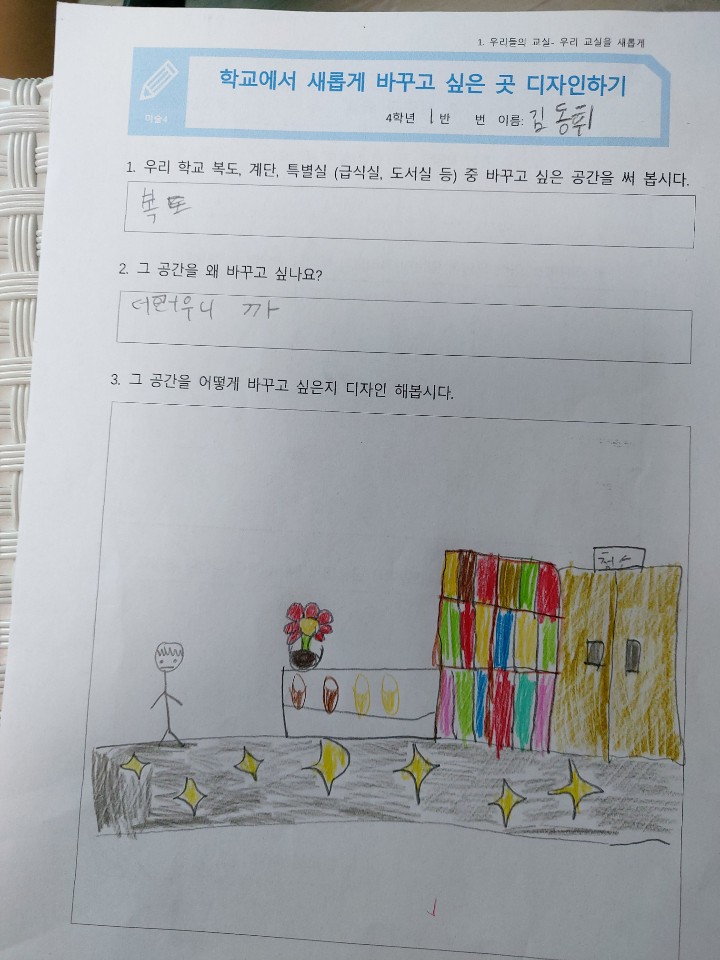 1. 우리들의 교실- 우리 교실을 새롭게
학교에서 새롭게 바꾸고 싶은 곳 디자인하기
미술4
4학년 1반 번 이름: 김동휘
1. 우리 학교 복도, 계단, 특별실 (급식실, 도서실 등) 중 바꾸고 싶은 공간을 써 봅시다.
복도
2. 그 공간을 왜 바꾸고 싶나요?
까
3. 그 공간을 어떻게 바꾸고 싶은지 디자인 해봅시다.